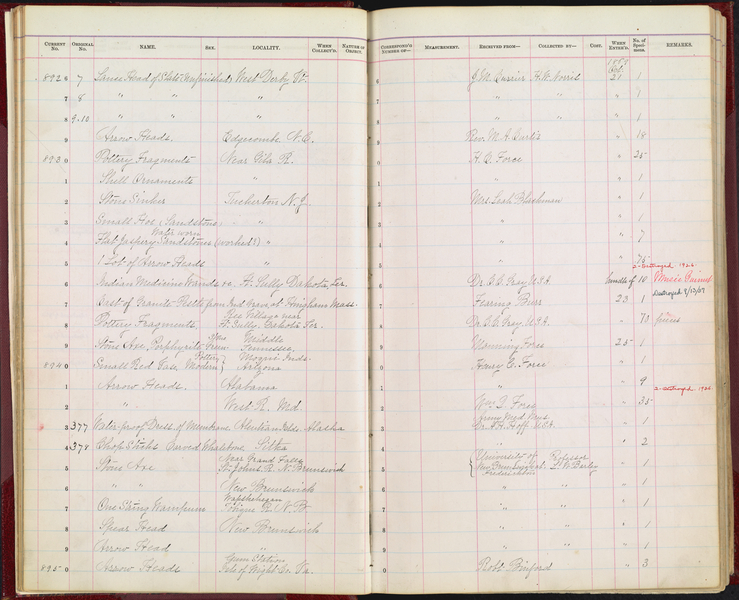 CURRENT No. ORIGINAL No. NAME. SEX. LOCALITY. WHEN COLLECT'D. NATURE OF OBJECT. CORRESPOND'G NUMBER OF— MEASUREMENT. RECEIVED FROM— COLLECTED BY— WHEN ENTER'D. No. of Specimens. REMARKS.
1869
8926 7 Lance Head of Slate (unfinished) West Derby Vt. 6 J. M. Currier H. W. Norris Oct. 21 1
7 8 " " " 7 " " " 1
8 9.10 " " " 8 " " " 1
9 Arrow Heads. Edgecombe N.C. 9 Rev. M. A. Curtis " 18
8930 Pottery Fragments Near Gila R. 0 H. C. Force " 25
1 Shell Ornaments " 1 " " 1
2 Stone Sinker Tuckerton N.J. 2 Mrs. Leah Blackman " 1
3 Small Hoe (Sandstone) " 3 " " 1
Water worn
4 Flat Jaspery Sandstones (worked?) " 4 " " 7
5 1 Lot of Arrow Heads " 5 " " 75
2-Destroyed 1922
6 Indian Medicine Wands &c. Ft. Sully Dakota Ter. 6 Dr. C. C. Gray U.S.A. bundle of 10 Musée Guimet
7 Cast of Granite Pestle from Ind. Grave at Hingham Mass. 7 Fearing Burr 23 1 Destroyed
Ree Village near
8 Pottery Fragments, Ft. Sully. Dakota Ter. 8 Dr. C. C. Gray U.S.A. " 70 pieces
9 Stone Axe, Porphyritic Middle Tennessee. 9 Manning Force 25 1
Pottery Moqui Inds.
8940 Small Red Vase Modern Arizona 0 Henry C. Force " 1
1 Arrow Heads. Alabama 1 " " 9
2-Destroyed
2 " West R. Md. 2 Wm. Q. Force " 35
Army Med. Mus.
3 377 Water-proof Dress, of Membrane Aleutian Isls. Alaska 3 Dr. A. H. Hoff U.S.A. " 1
4 378 Chop Sticks Carved Whalebone Sitka 4 " " 2
Near Grand Falls University of Professor
5 Stone Axe St. Johns R. N. Brunswick 5 New Brunswick. L. W. Bailey " 1
Fredericton
6 " " New Brunswick 6 " " " 1
Wapskehegan
7 One String Wampum Tobique R. N.B. 7 " " " 1
8 Spear Head New Brunswick 8 " " " 1
9 Arrow Head " 9 " " " 1
8950 Arrow Heads Isle of Wight Co. Va. 0 Robt. Binford " 3